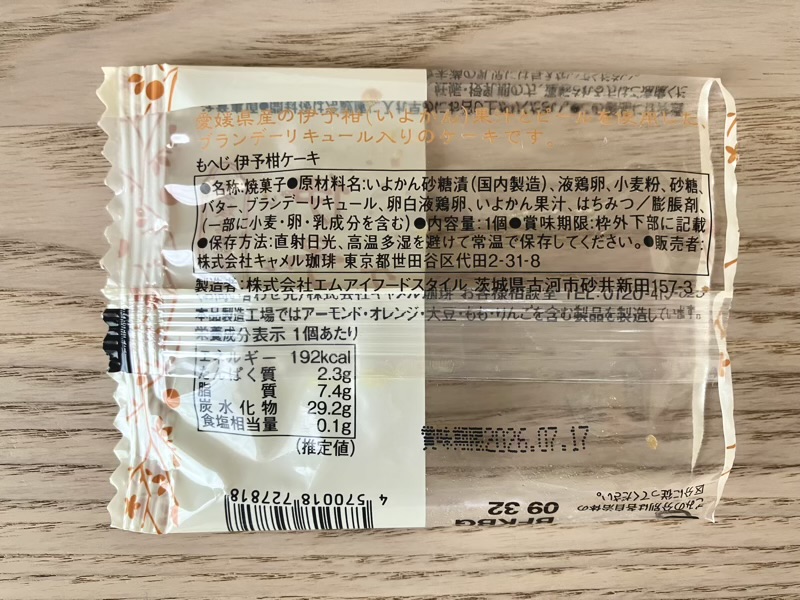 愛媛県産の伊予柑(いよかん)果汁と
ブランデーリキュール入りのケーキです。
もへじ 伊予柑ケーキ
●名称:焼菓子●原材料名:いよかん砂糖漬(国内製造)、液鶏卵、小麦粉、砂糖、
バター、ブランデーリキュール、卵白液鶏卵、いよかん果汁、はちみつ/膨脹剤、
(一部に小麦・卵・乳成分を含む)●内容量:1個●賞味期限:枠外下部に記載
●保存方法:直射日光、高温多湿を避けて常温で保存してください。●販売者:
株式会社キャメル珈琲 東京都世田谷区代田2-31-8
製造者:株式会社エムアイフードスタイル 茨城県古河市砂井新田157-3
株式会社キャメル珈琲 お客様相談室 TEL:0120-
本品製造工場ではアーモンド・オレンジ・大豆・もも・りんごを含む製品を製造しています。
栄養成分表示 1個あたり
エネルギー 192kcal
たんぱく質 2.3g
脂質 7.4g
炭水化物 29.2g
食塩相当量 0.1g
(推定値)
賞味期限2026.07.17
4 570018 727818
BFKBG
09 32
ごみの分別は各自治体の
区分に従ってください。